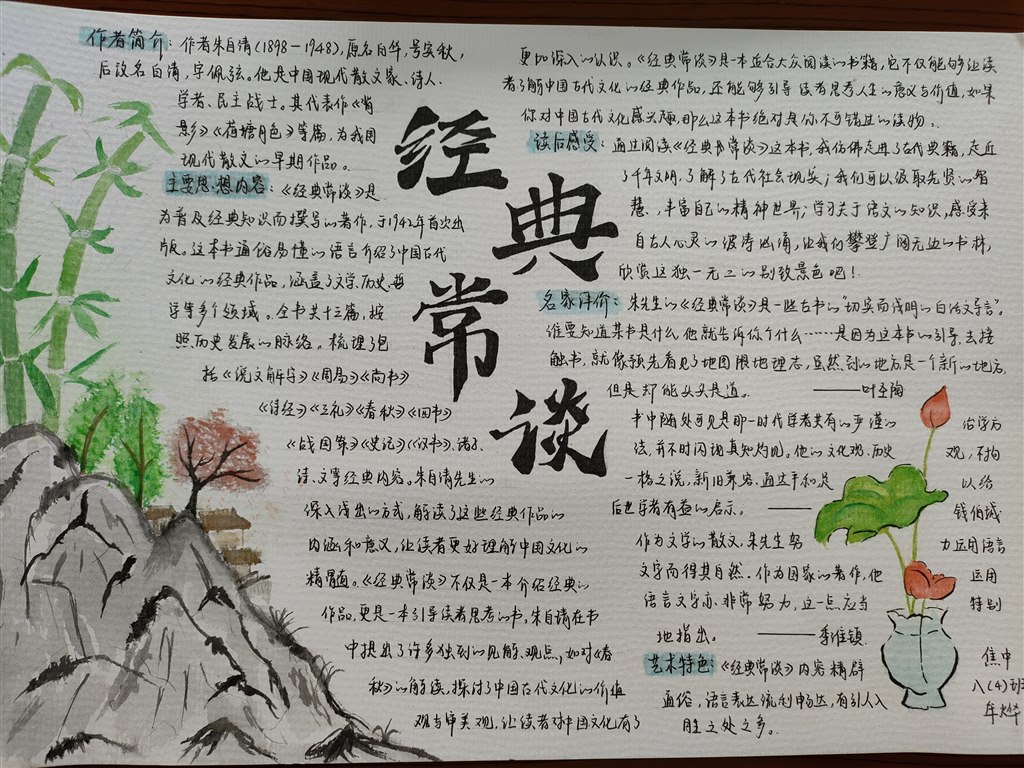 作者简介：作者朱自清(1898－1948)，原名自华，号实秋，
后改名自清，字佩弦。他是中国现代散文家、诗人、
学者、民主战士。其代表作《背
影》《荷塘月色》等篇，为我国
现代散文的早期作品。
主要思想内容：《经典常谈》是
为普及经典知识而撰写的著作，于1942年首次出
版。这本书通俗易懂的语言介绍了中国古代
文化的经典作品，涵盖了文学、历史、哲
学等多个领域。全书共十三篇，按
照历史发展的脉络。梳理了包
括《说文解字》《周易》《尚书》
《诗经》《三礼》《春秋》《四书》
《战国策》《史记》《汉书》、诸子、
诗、文等经典内容。朱自清先生以
深入浅出的方式，解读了这些经典作品的
内涵和意义，让读者更好理解中国文化的
精髓。《经典常谈》不仅是一本介绍经典的
作品，更是一本引导读者思考的书，朱自清在书
中提出了许多独到的见解、观点，如对《春
秋》的解读，探讨了中国古代文化的价值
观与审美观，让读者对中国文化有了
经典常谈
更加深入的认识。《经典常谈》是一本适合大众阅读的书籍，它不仅能够让读
者了解中国古代文化的经典作品，还能够引导读者思考人生的意义与价值，如果
你对中国古代文化感兴趣，那么这本书绝对是你不可错过的读物。
读后感受：通过阅读《经典常谈》这本书，我仿佛走进了古代典籍，走近
了千年文明，了解了古代社会现实；我们可以汲取先贤的智
慧、丰富自己的精神世界；学习关于语文的知识，感受来
自古人心灵的波涛汹涌，让我们攀登广阔无边的书林，
欣赏这独一无二的别致景色吧！
名家评价：朱先生的《经典常谈》是一些古书的"切实而浅明的白话文导言"。
谁要知道某书是什么，他就告诉你个什么……是因为这本书的引导，去接
触书，就像预先看见了地图跟地理志，虽然到的地方是一个新的地方，
但是却能头头是道。——叶圣陶
书中随处可见是那一时代学者共有的严谨的 治学方
法，并不时闪现真知灼见。他的文化观、历史 观，不拘
一格之说，新旧兼容、通达平和是 以给
后世学者有益的启示。—— 钱伯城
作为文学的散文，朱先生努 力运用语言
文字而得其自然。作为国家的著作，他 运用
语言文字亦非常努力，这一点应当 特别
地指出。——季镇淮
艺术特色：《经典常谈》内容精辟
通俗，语言表达流利畅达，有引人入
胜之处之多。
焦中
八(4)班
牟烨